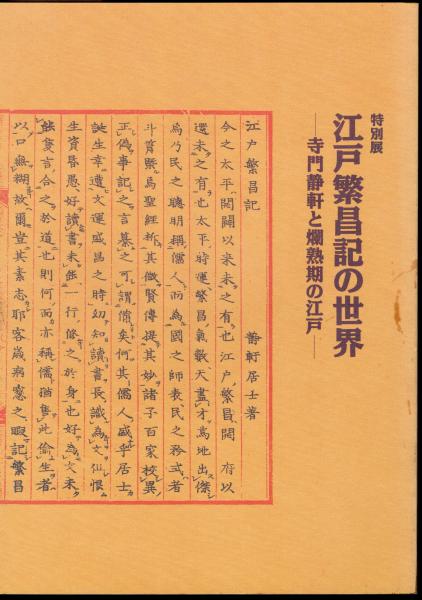 特別展
江戸繁昌記の世界
―寺門静軒と爛熟期の江戸―
江戸繁昌記
静軒居士著
今之太平開闢以来未之有也江戸繁昌開府以
還未之有也太平時運繁昌氣數天盡才焉地出傑
為乃民之聰明稱儒人而為國之師表民之務式者
斗筲緊為聖經析其微賢傳提其妙諸子百家校異
正偽事記之言纂之可謂備矣何其儒人盛乎居士
誕生幸遭文運盛昌之時幼知讀書長識為文仙恨
生資昏愚好讀書未能一行修之於身也好為文未
能寔言合之於道也則何而亦稱儒猶售此偷生者
以口無糊故爾豈其素志耶客歳病感之暇記繁昌